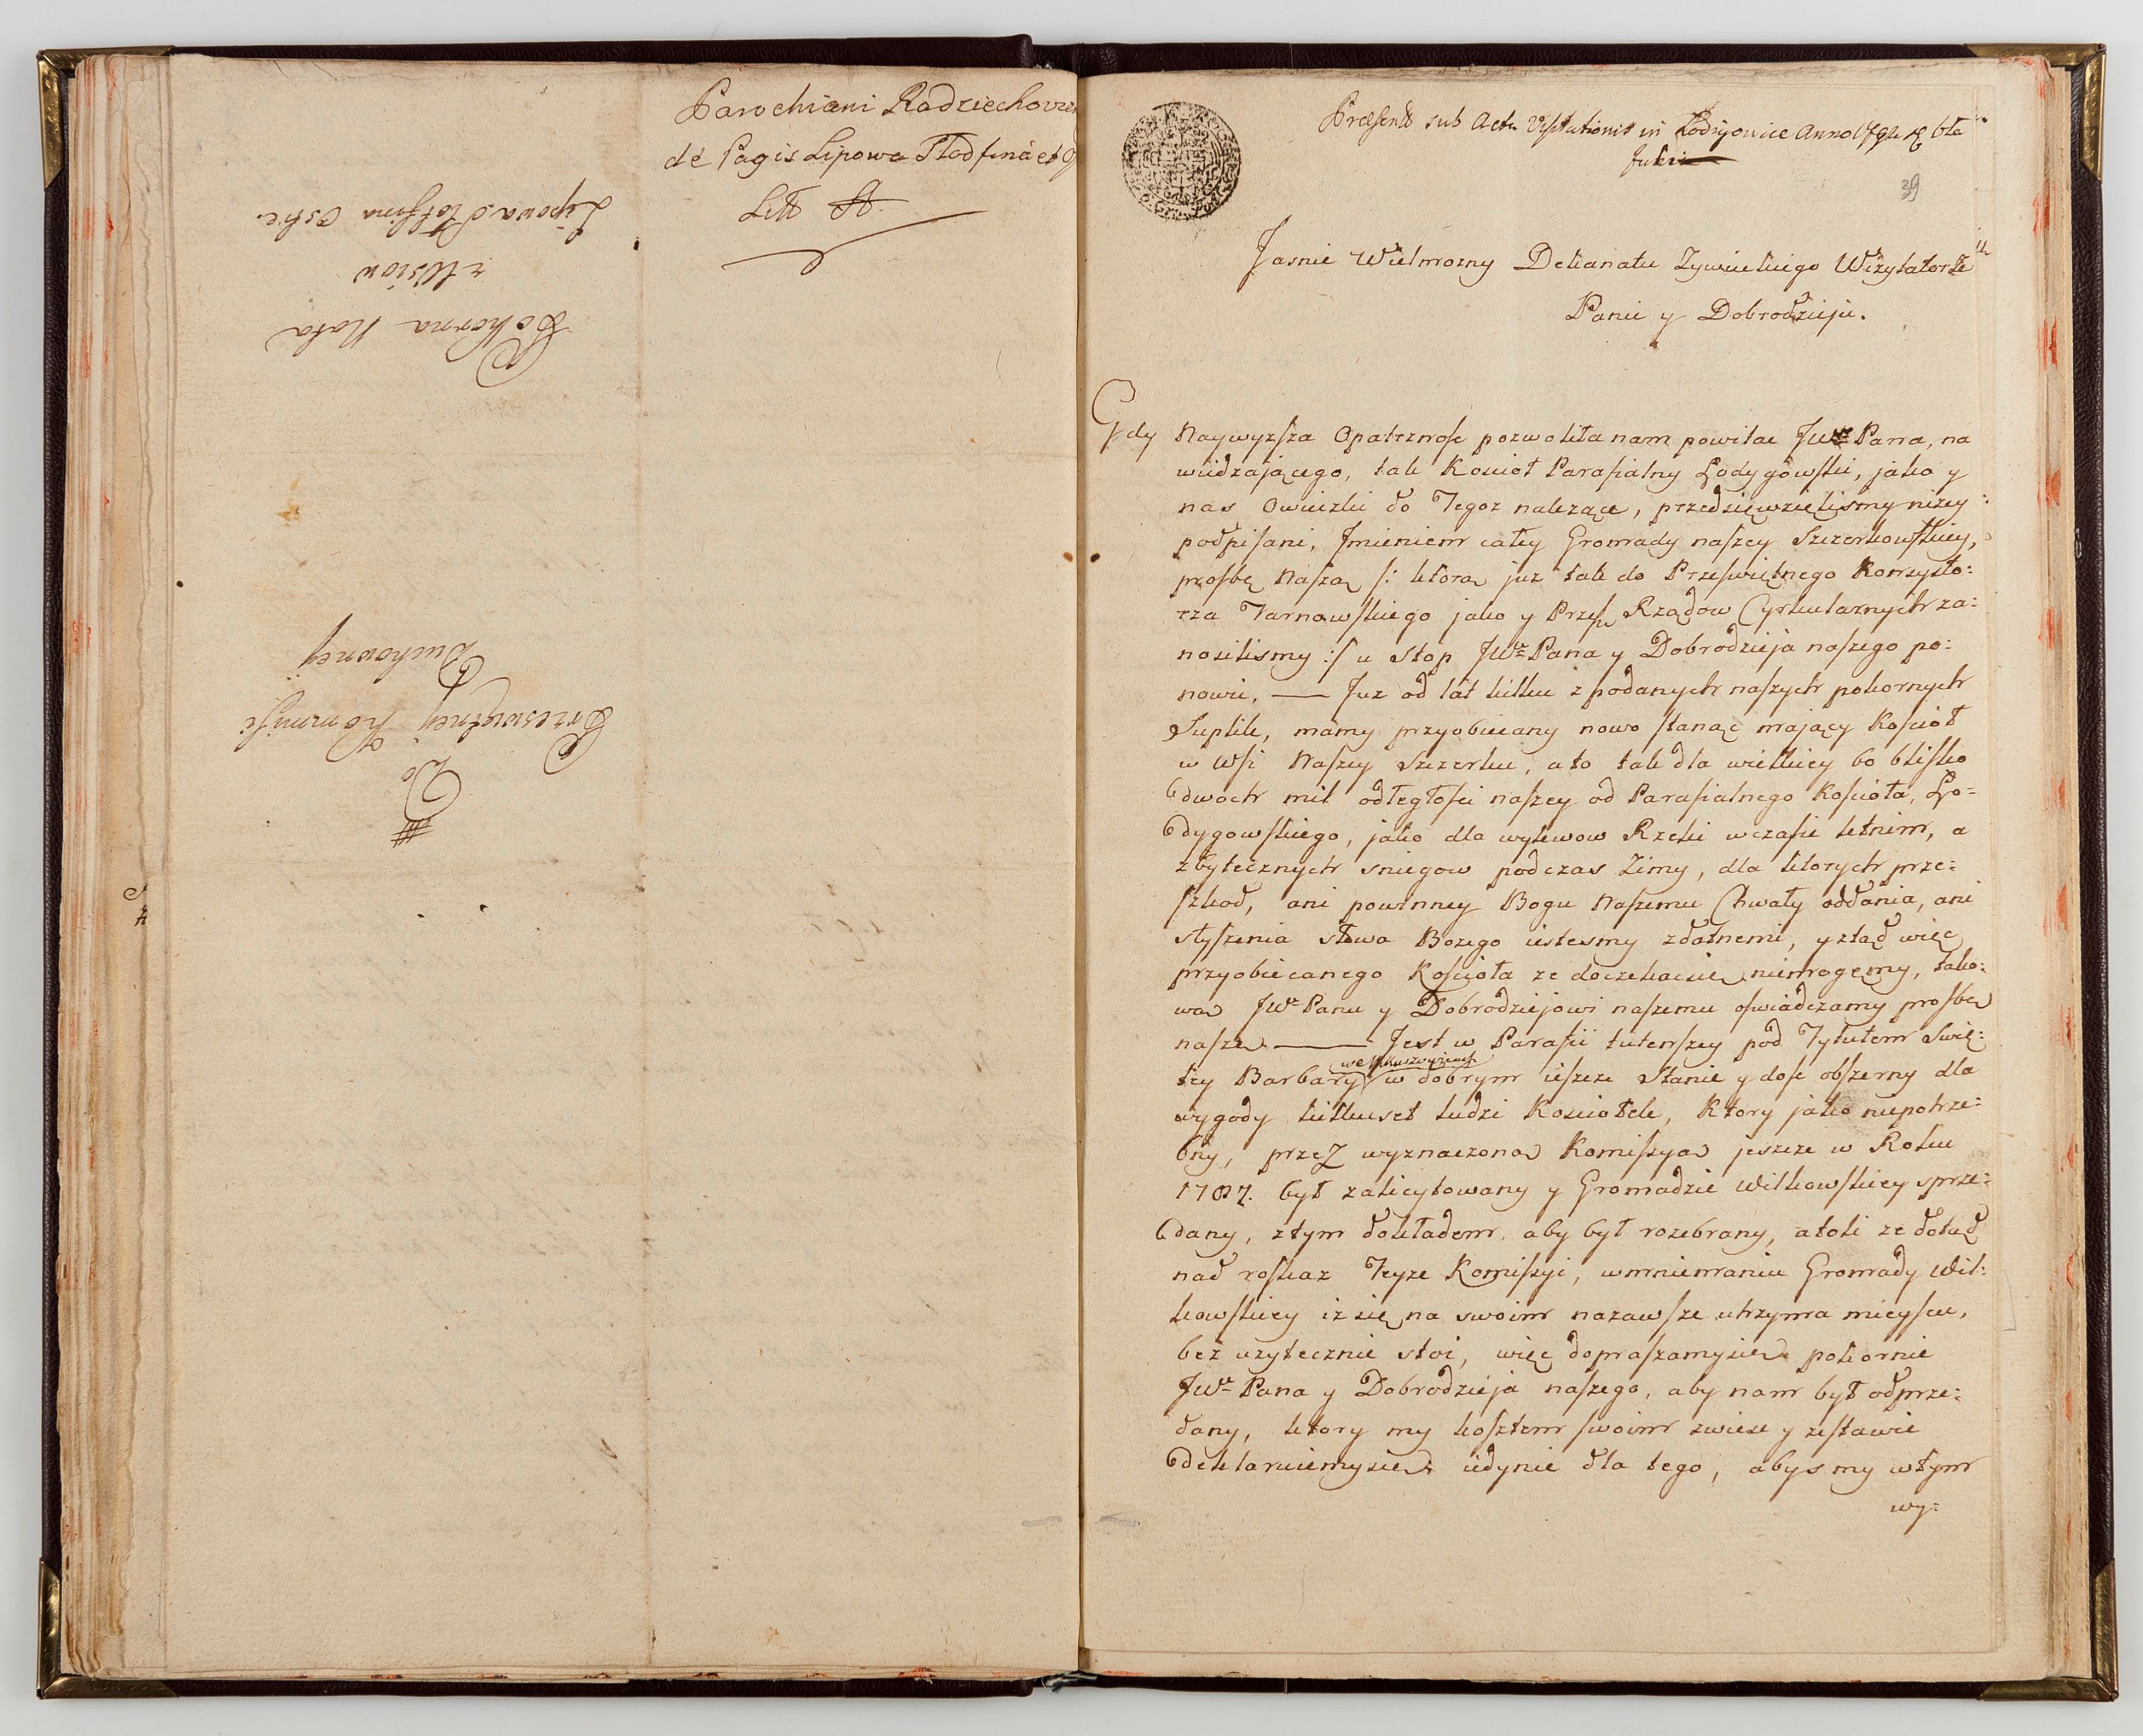 Parochiani Radziechovien
de Pagis Lipowa Słodfina et
Litt A.
Pokorna Nota
z Wsiow
Lipowa Słotfina Ostre.
Do
Przeswiętney Kommisii
Duchowney
Præsent sub Actu Visitationis in Łodÿgowice Anno
Julii
39
Jasnie Wielmozny Dekanatu Zywieckiego Wizytatorze
Panie y Dobrodzieju.
Gdy Naywyzsza Opatrznosc pozwoliła nam powitac JWo Pana, na
wiedzaiącego, tak Kosciół Parafialny Łodygowski, jako y
nas Owieczki do Tegoz nalezące, przedsięwzielismy nizey
podpisani, Jmieniem całey Gromady naszey Szczerkowskiey,
prosbę Naszą /: ktorą juz tak do Przeswiętnego Konsysto:
rza Tarnowskiego jako y Przes Rządow Cyrkularnych za:
nosilismy :/ u Stop JWo Pana y Dobrodzieja naszego po:
nowic, — Juz od lat kilku z podanych naszych pokornych
Suplik, mamy przyobiecany nowo stanąc maiący Kosciół
w Wsi Naszey Szczerku, a to tak dla wielkiey bo blisko
dwoch mil odległosci naszey od Parafialnego Koscioła, Ło-
dygowskiego, jako dla wylewow Rzeki w czasie letnim, a
zbytecznych sniegow podczas Zimy, dla ktorych prze:
szkod, ani powinney Bogu Naszemu Chwały oddania, ani
słyszenia słowa Bozego iestesmy zdolnemi, y ztąd więc
przyobiecanego Koscioła ze doczekacsię niemogęmy, tako:
wą JWo Panu y Dobrodziejowi naszemu oswiadczamy prosbę
naszę. — Jest w Parafii tuteyszey pod Tytułem Swię:
tey Barbary w Mikuszowicach w dobrym ieszcze Stanie y dosc obszerny dla
wygody kilkuset ludzi Kosciołek, Ktory jako niepotrze:
bny, przez wyznaczoną Komissyą jeszcze w Roku
1787. był zalicytowany y Gromadzie Wilkowskiey sprze:
dany, z tym dokładem, aby był rozebrany, a toli ze dotąd
nad roskaz Teyze Komissyi, w mniemaniu Gromady Wil:
kowskiey iz się na swoim nazawsze utrzyma mieyscu,
bez uzytecznie stoi, więc dopraszamysię pokornie
JWo Pana y Dobrodzieja naszego, aby nam był odprze:
dany, ktory my kosztem swoim zwiesc y zestawic
deklaruiemysię iedynie dla tego, abysmy w tym
wy: